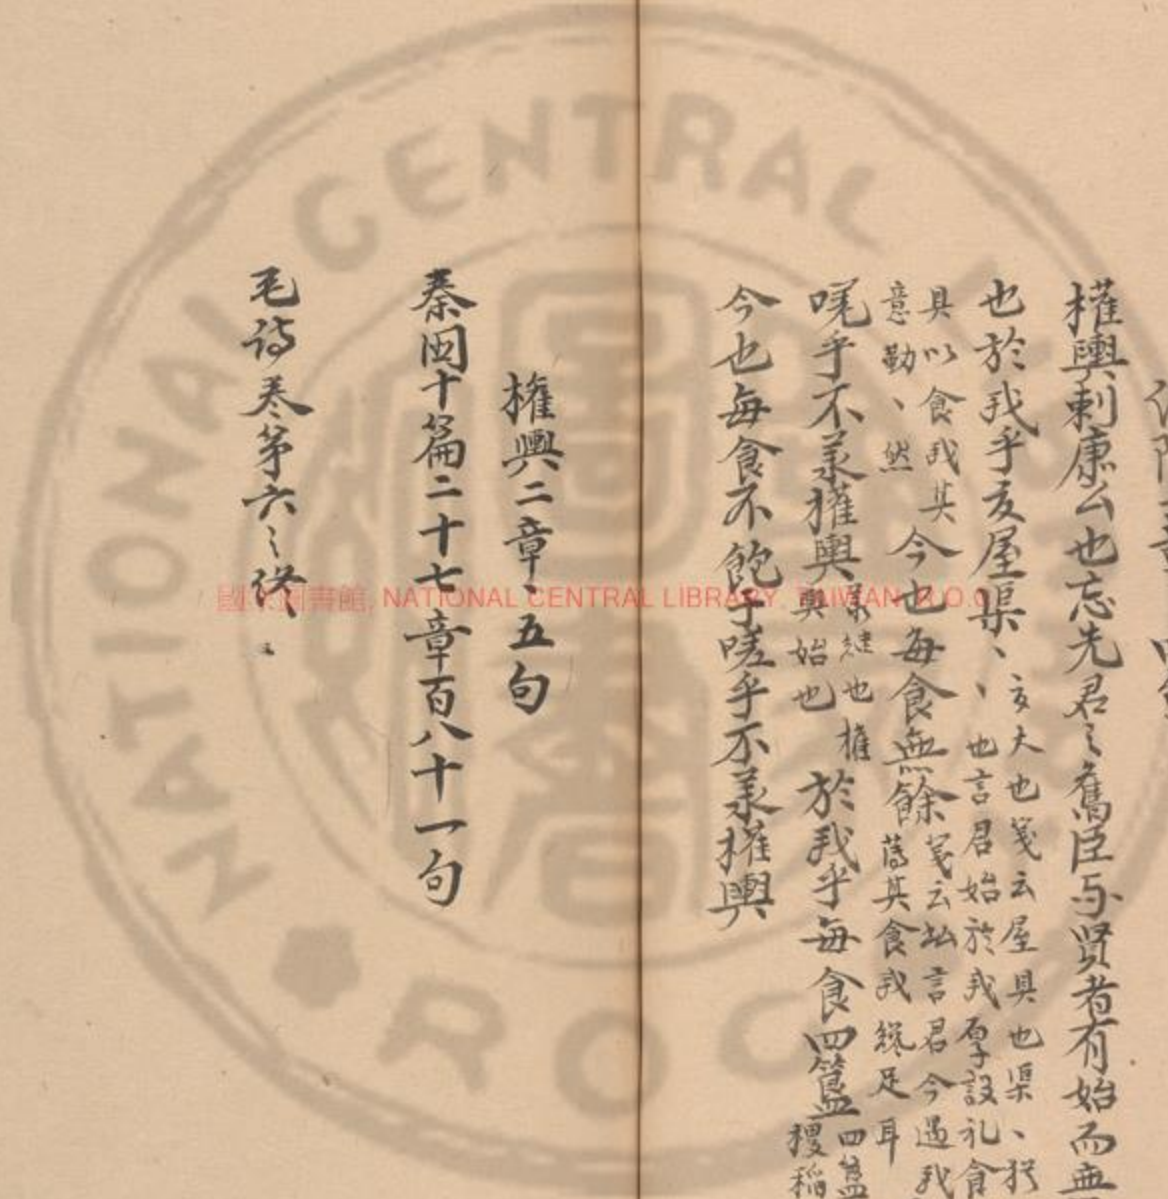 權輿刺康公也忘先君〻舊臣与賢者有始而無
也於我乎夏屋渠、夏大也箋云屋具也渠、犹
、也言君始於我厚設礼食
具以食我其
意勤、然
今也每食無餘箋云此言君今遇我
薄其食我纔足耳
嗟乎不羕權輿羕継也權
輿始也
於我乎每食四簋四簋
稷稲
今也每食不飽于嗟乎不羕權輿
權輿二章、五句
秦国十篇二十七章百八十一句
毛诗巻第六〻终
國家圖書館, NATIONAL CENTRAL LIBRARY, TAIWAN R.O.C
NATIONAL CENTRAL
ROC